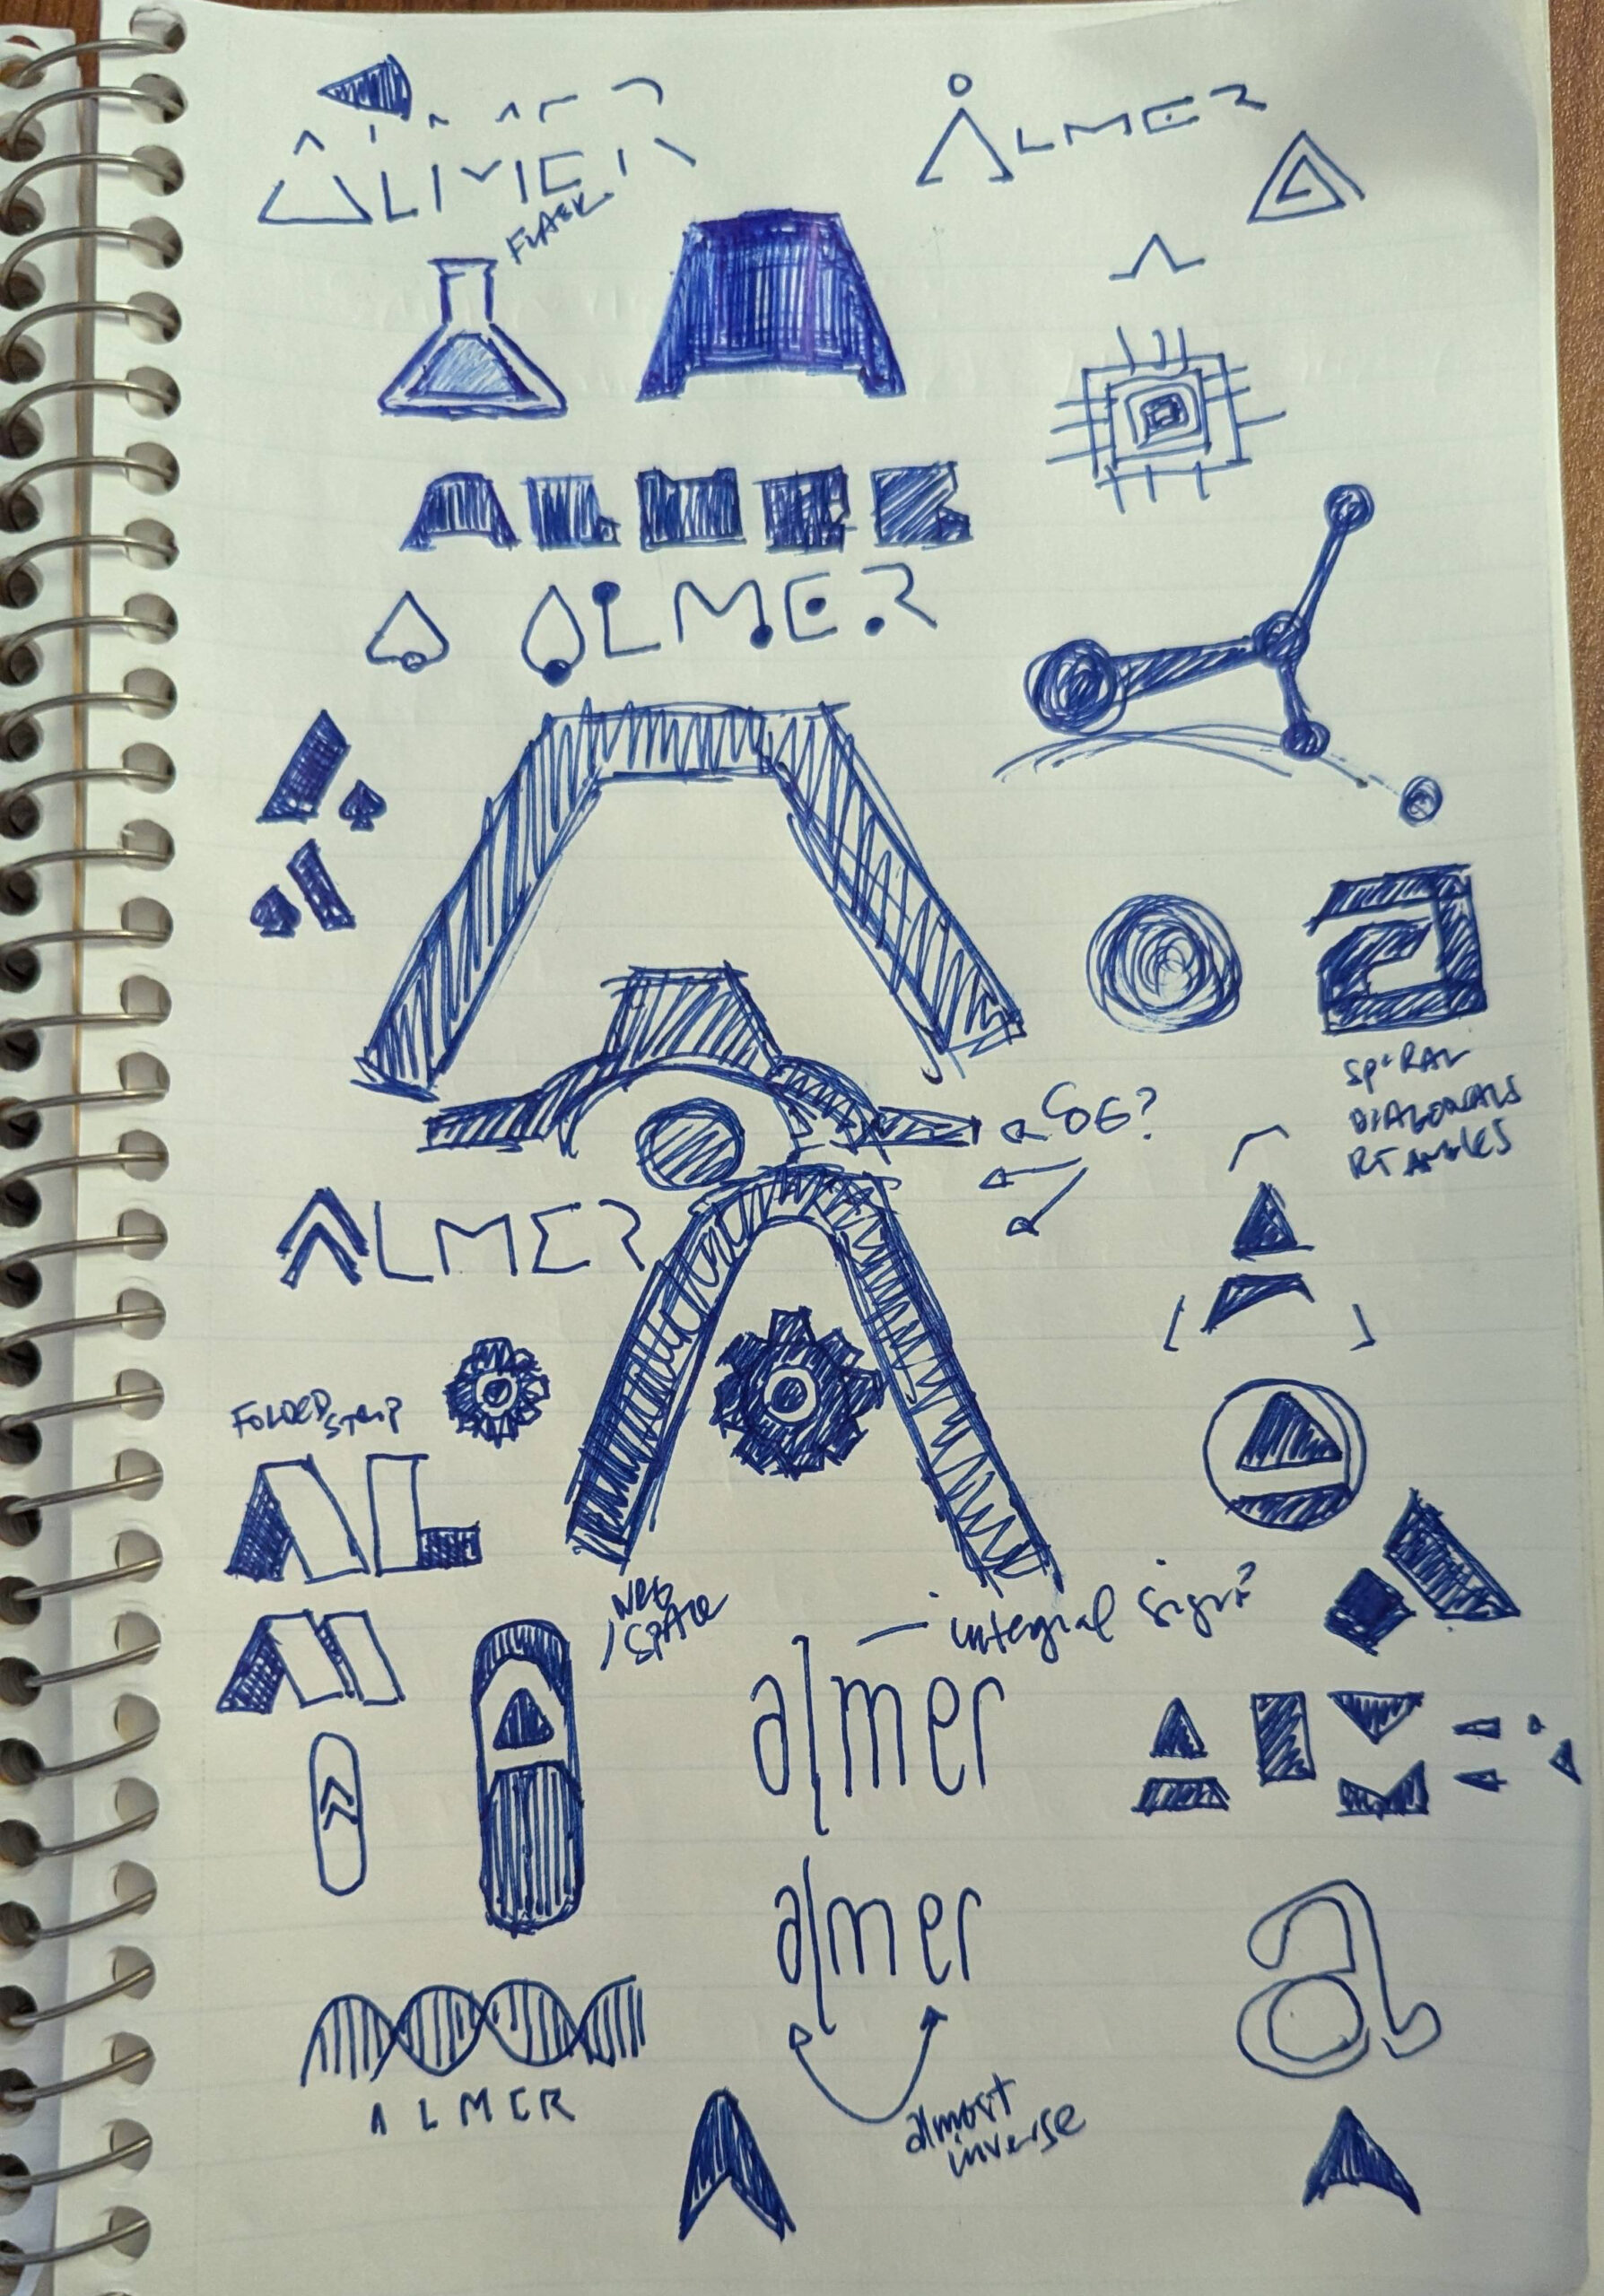 ALMER
ÅLMER
FLASK
ALMER
ALMER
a
SPIRAL
DIAGONALS
RT ANGLES
ALMER
FOLDED
STRIP
AL
NEG
SPACE
integral sign?
almer
almer
a
almost
inverse
ALMER